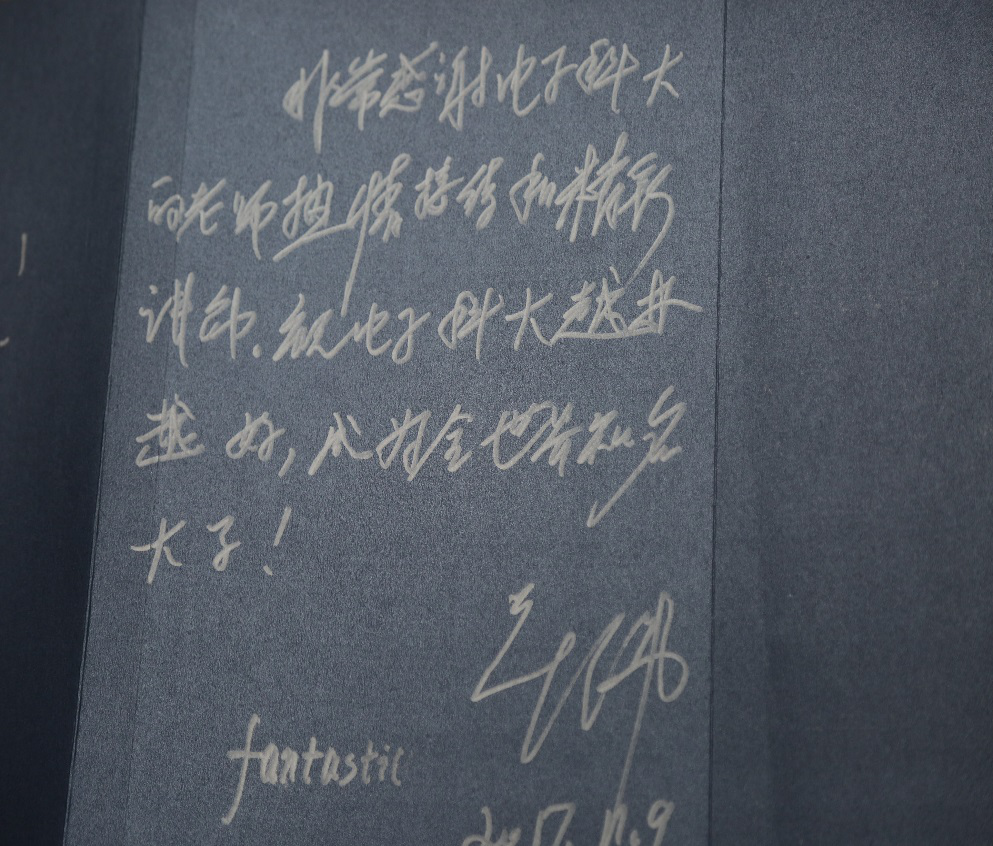 非常感谢电子科大
的老师热情接待和精彩
讲解.祝电子科大越办
越好,成为全世界知名
大学!
fantastic
2017.11.9